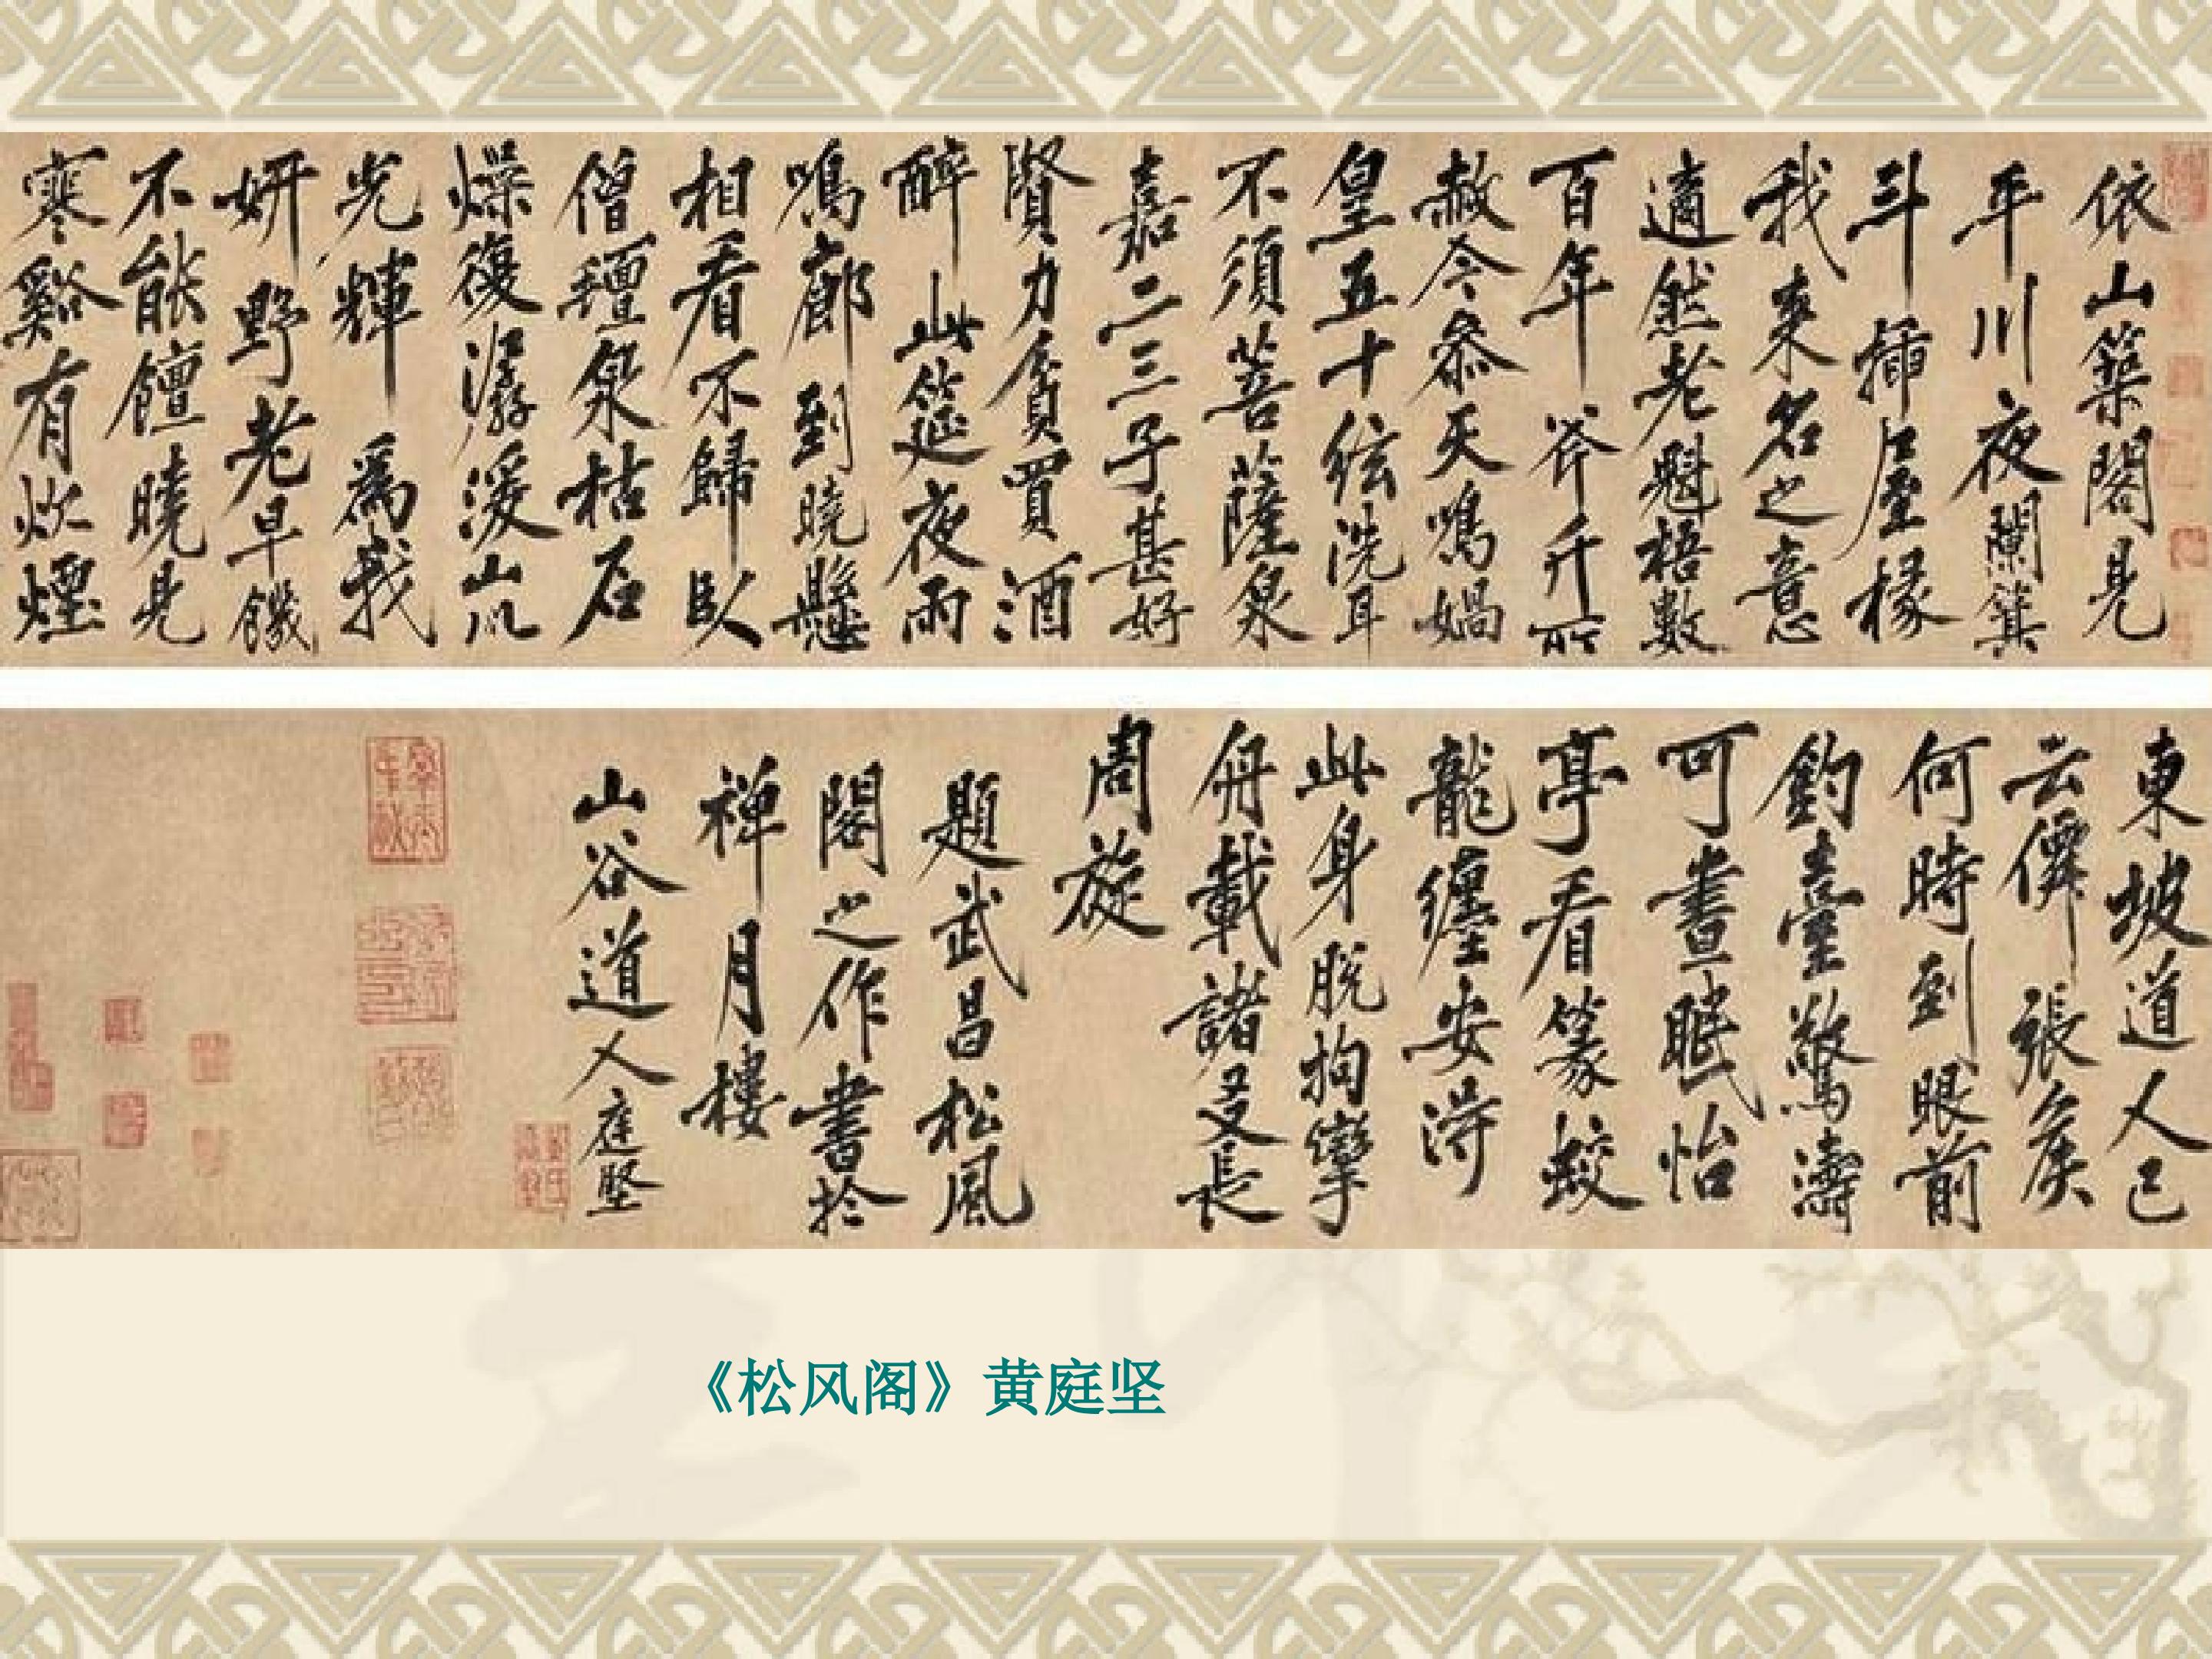 依山築閣見
平川夜闌箕
斗插屋椽
我來名之意
適然老魁梧數
百年斧斤所
赦今參天鳴媧
皇五十弦洗耳
不須菩薩泉
嘉二三子甚好
賢力貧買酒
醉此筵夜雨
鳴廊到曉懸
相看不歸臥
僧氈泉枯石
燥復潺湲山川
光輝為我
妍野老早饑
不能饘曉見
寒谿有炊煙
東坡道人已
云儕張矦
何時到眼前
釣臺驚濤
可晝眠怡
亭看篆蛟
龍纏安得
此身脫拘攣
舟載諸友長
周旋
題武昌松風
閣之作書於
禅月樓
山谷道人庭堅
《松风阁》黄庭坚